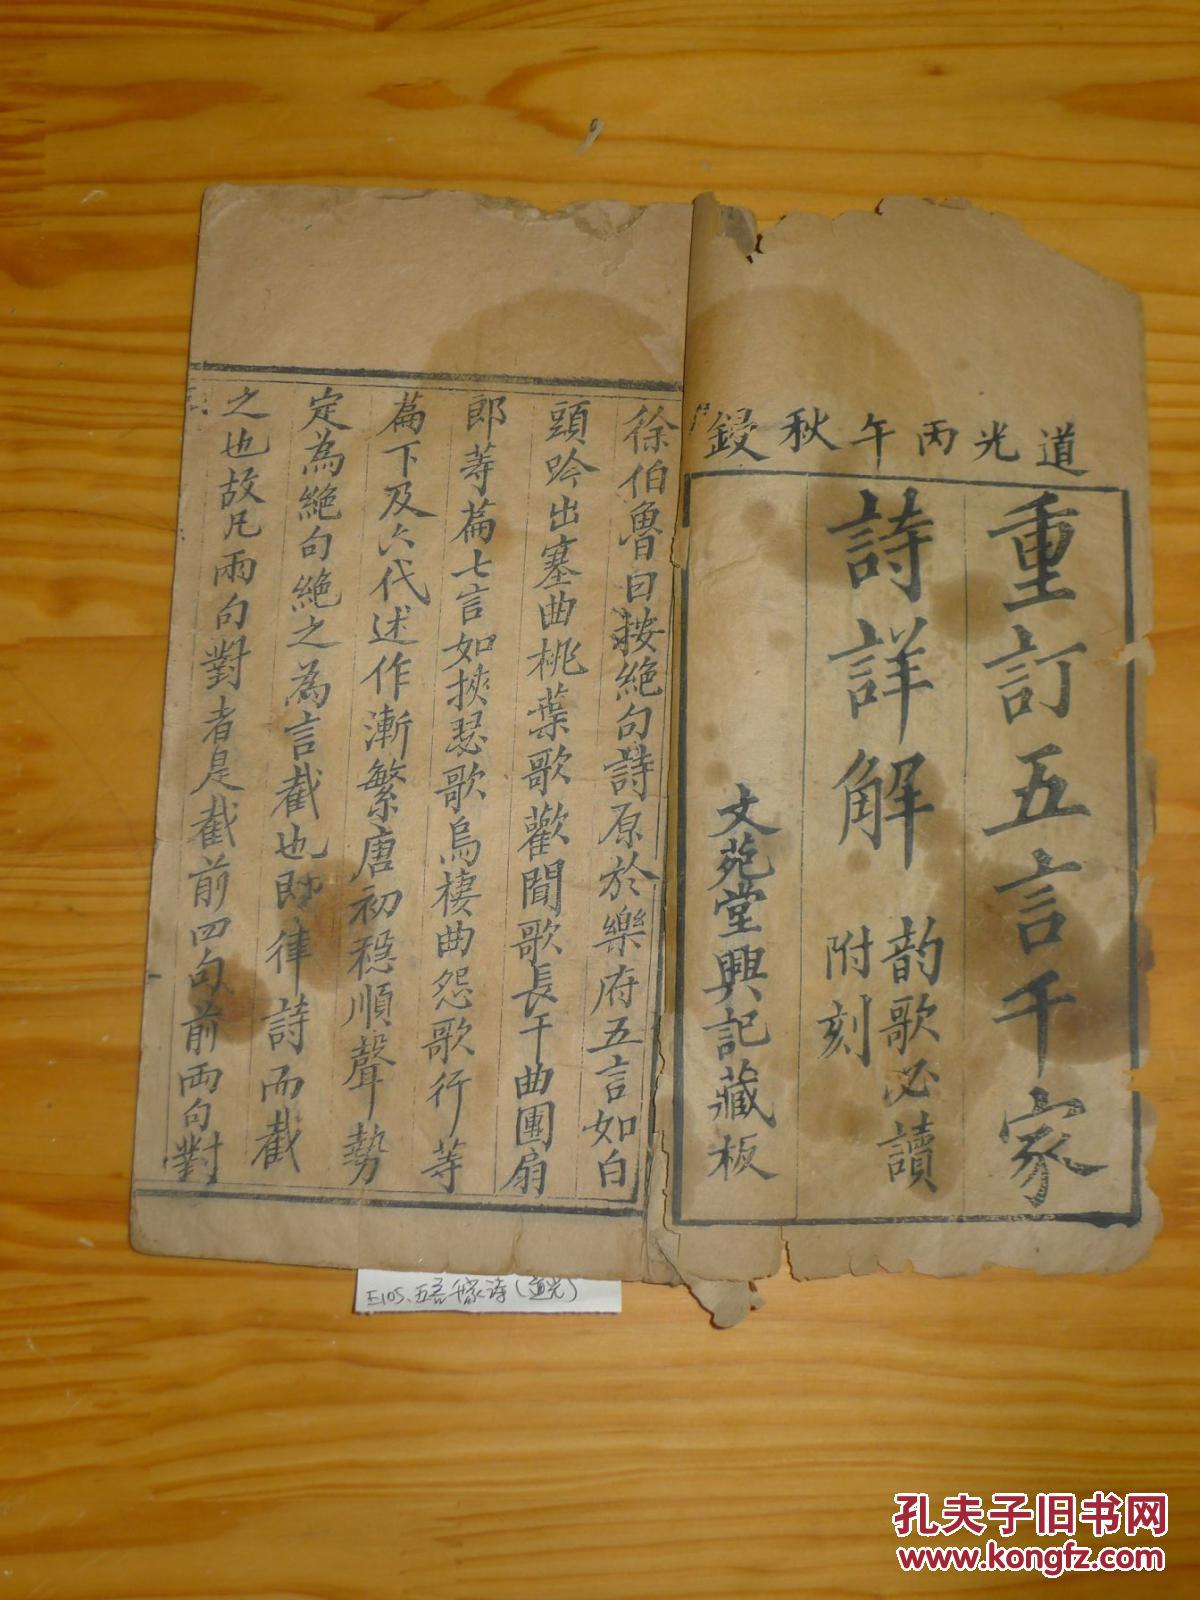 道光丙午秋鋟
重訂五言千家
詩詳解
韵歌必讀
附刻
文苑堂興記藏板
徐伯魯曰按絶句詩原於樂府五言如白
頭吟出塞曲桃葉歌歡聞歌長干曲團扇
郎等篇七言如挾瑟歌烏棲曲怨歌行等
篇下及六代述作漸繁唐初穏順聲勢
定為絶句絶之為言截也即律詩而截
之也故凡兩句對者是截前四句前兩句對
E105、五言千家诗(道光)
孔夫子旧书网
www.kongfz.com